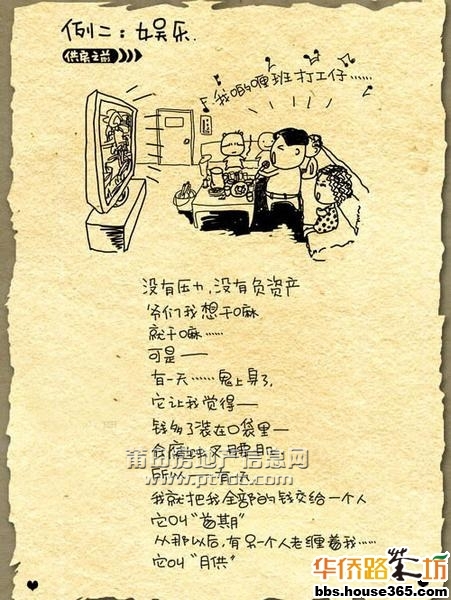 例二：娱乐.
供房之前
我哋喱班打工仔……
没有压力,没有负资产
爷们我想干嘛
就干嘛……
可是——
有一天……鬼上身了,
它让我觉得——
钱多了装在口袋里—
会腐蚀叉腰肌
莆田房地产信息网
www.ptfdc.com
所以——有一天
我就把我全部的钱交给一个人
它叫"首期"
从那以后,有另一个人老缠着我……
它叫"月供"
华侨路茶坊
bbs.house365.com